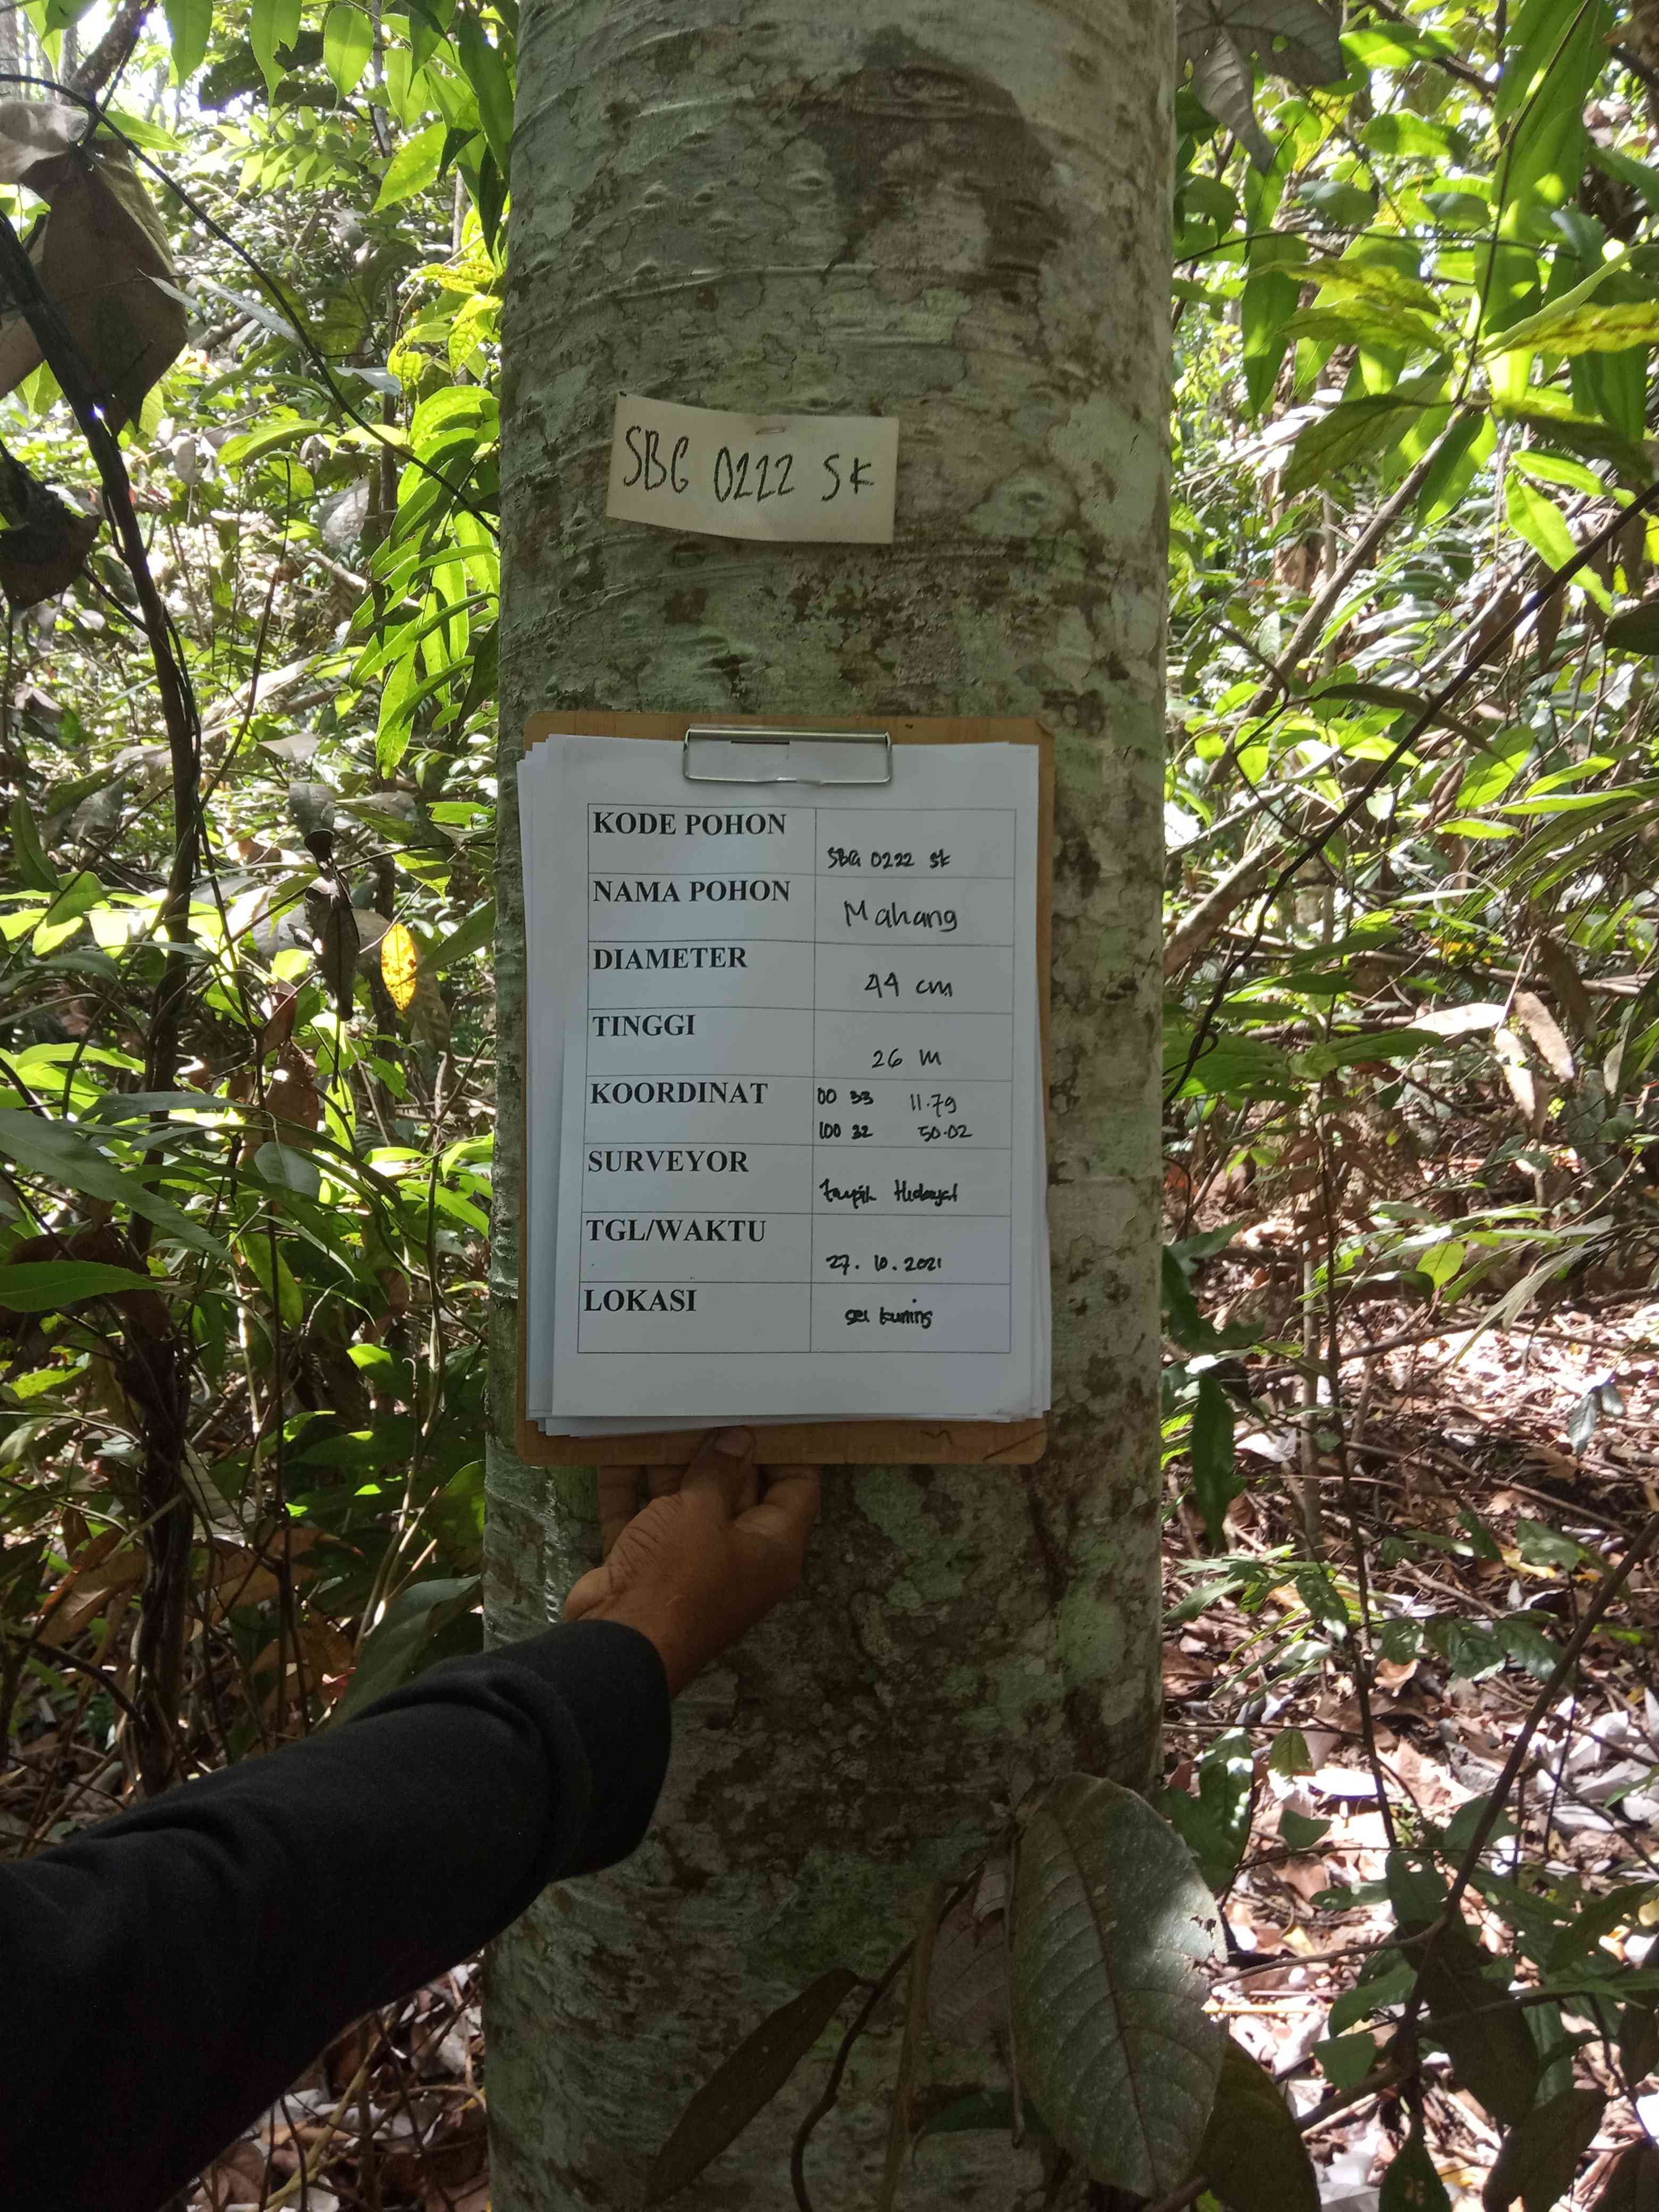 SBG 0222 SK
KODE POHON
SBG 0222 SK
NAMA POHON
Mahang
DIAMETER
44 cm
TINGGI
26 m
KOORDINAT
00 33 11.79
100 32 50.02
SURVEYOR
Taupik Hidayat
TGL/WAKTU
27. 10. 2021
LOKASI
sei kuning